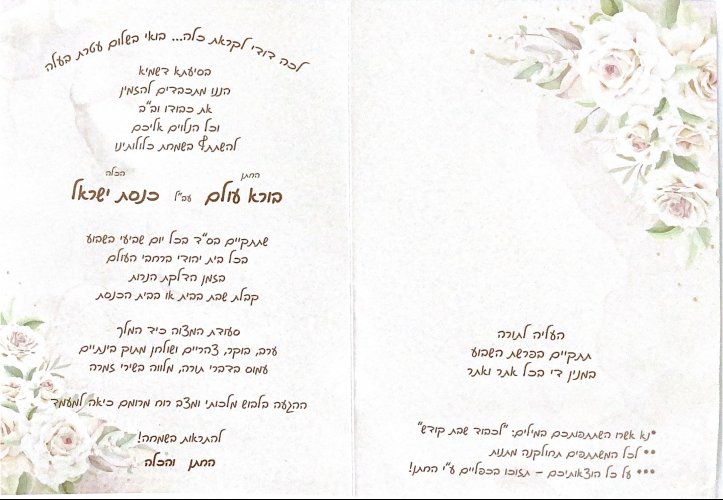 לכה דודי לקראת כלה... בואי בשלום עטרת בעלה
בסיעתא דשמיא
הננו מתכבדים להזמין
את כבודו וב"ב
וכל הנלוים אליכם
להשתתף בשמחת כלולותינו
החתן הכלה
בורא עולם עב"ל כנסת ישראל
שתתקיים בס"ד בכל יום שביעי בשבוע
בכל בית יהודי ברחבי העולם
בזמן הדלקת הנרות
קבלת שבת בבית או בבית הכנסת
סעודת המצוה כיד המלך
ערב, בוקר, צהריים ושולחן מתוק בינתיים
עמוס בדברי תורה, מלווה בשירי זמרה
ההגעה בלבוש מלכותי ומצב רוח מרומם כיאה למעמד
להתראות בשמחה!
החתן והכלה
העליה לתורה
תתקיים בפרשת השבוע
במנין די בכל אתר ואתר
*נא אשרו השתתפותכם במילים: "לכבוד שבת קודש"
** לכל המשתתפים תחולקנה מתנות
*** על כל הוצאותיכם - תזוכו בכפליים ע"י החתן!